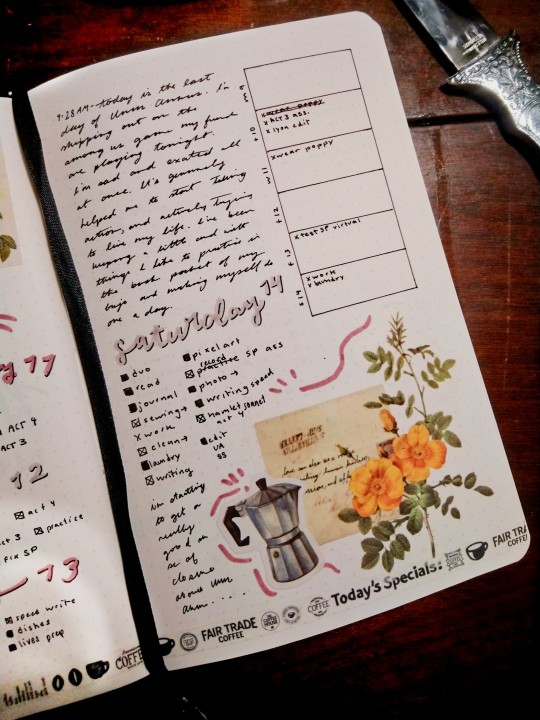 y 11
ACT 4
ACT 3
12
act 4
act 3 practice
fix SP
13
speed write
dishes
lives prep
9:28 AM - today is the last
day of Unus Annus. I'm
skipping out on the
among us game my friends
are playing tonight.
i'm sad and excited all
at once. It's genuinely
helped me to start taking
action, and actively trying
to live my life. I've been
keeping a little card with
things I like to practice in
the back pocket of my
bujo and making myself do
one a day.
M 9
T 10
x wear poppy
x ACT 3 ass.
x lyon edit
W 11
x wear poppy
T 12
F 13
x test SP virtual
S 14
x work
x laundry
saturday 14
duo
read
journal
sewing →
x work
clean →
laundry
writing
pixel art
record
practice SP ass
photo →
writing speed
hamlet sonnet
act 4
edit
UA
SS
i'm starting
to get a
really
good
of
closure
about Unus
Annus....
love can also be a
FAIR TRADE
COFFEE
COFFEE
Today's Specials:
FAIR TRA
COFFE
COFFE